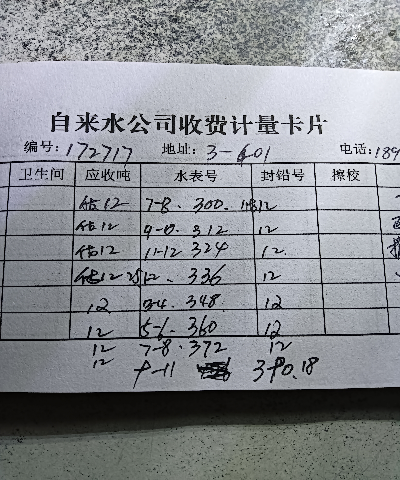 自来水公司收费计量卡片
编号: 172717 地址: 3-601 电话: 189
卫生间 应收吨 水表号 封铅号 擦校
估12 7-8. 300. 12
估12 9-10. 312 12
估12 11-12 324 12.
估12 12. 336 12
12 3-4. 348. 12
12 5-6. 360 12
12 7-8. 372 12
12 9-11 390.18